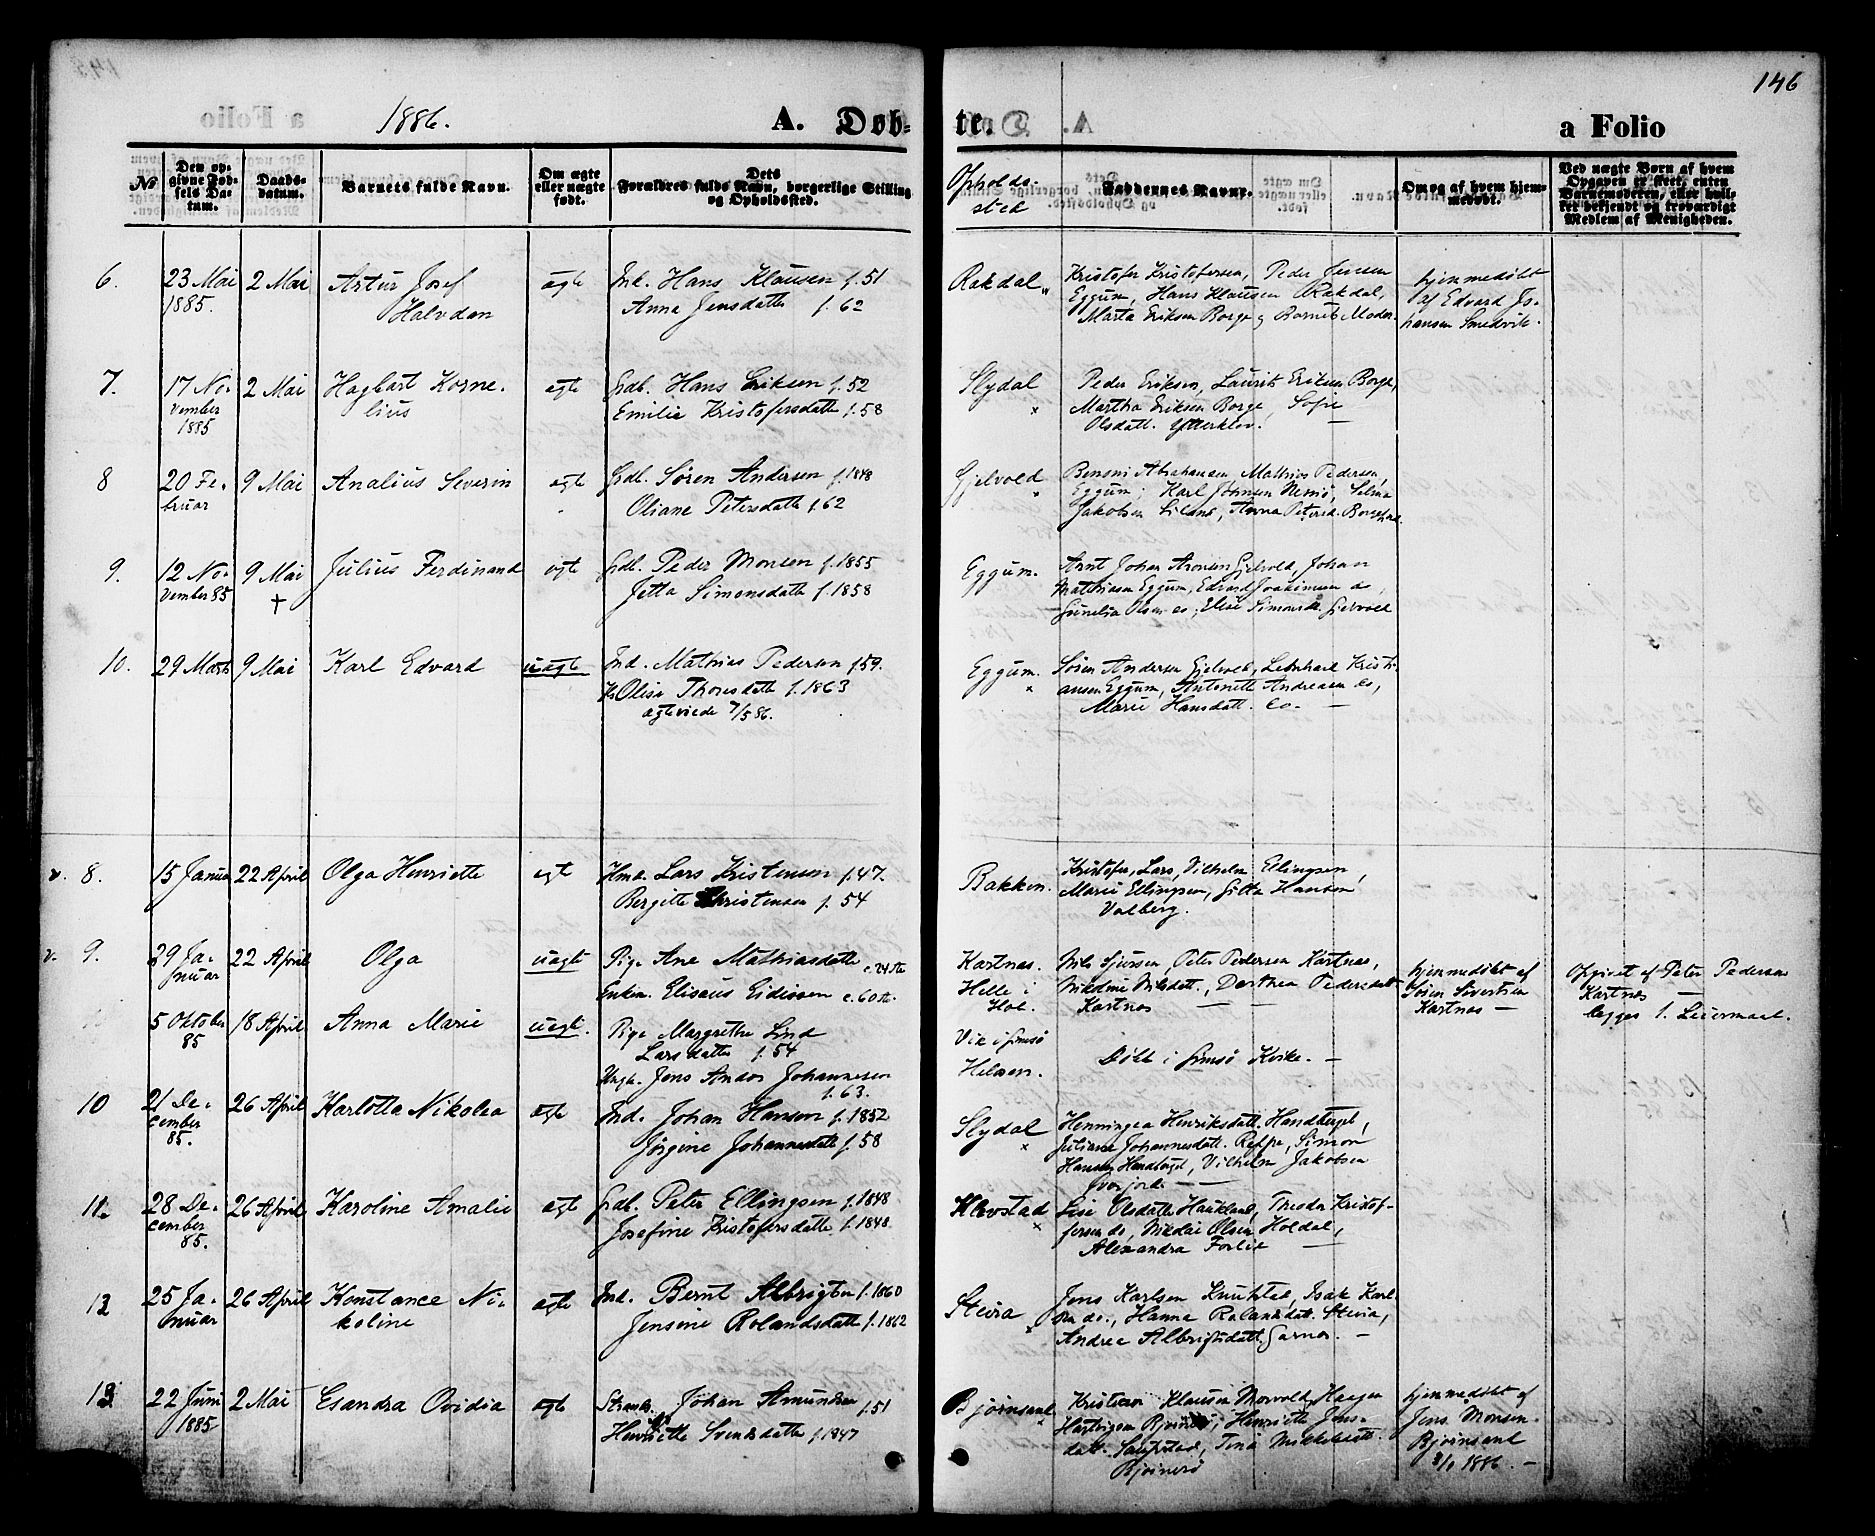 146
1886.
A. Døb-
te.
a Folio
No
Den op-
givne Fød-
sels Da-
tum.
Daabs-
datum.
Barnets fulde Navn.
Om ægte
eller nægte
født.
Dets
Forældres fulde Navn, borgerlige Stilling
og Opholdssted.
Opholds-
sted
Faddernes Navne.
Om og af hvem hjem-
medøbt.
Ved nægte Børn af hvem
Opgaven er skeet, enten
Barnemoderen, eller hvil-
ket bekjendt og troværdigt
Medlem af Menigheden.
6.
23 Mai
1885.
2 Mai
Artur Josef
Halvdan
ægte
Ink. Hans Klausen f. 51
Anna Jensdatte f. 62
Rakdal
Kristofer Kristofersen, Peder Jensen
Eggum, Hans Klausen Rakdal,
Marta Eriksen Borge og Barnets Moder.
hjemmedøbt
af Edvard Jo-
hansen Smedvik.
7.
17 No-
vember
1885
2 Mai
Hagbart Korne-
lius
ægte
Grdb. Hans Eriksen f. 52
Emilie Kristofersdatte f. 58
Slydal
Peder Eriksen, Laurits Eriksen Borge,
Martha Eriksen Borge, Sofie
Olsdatt. Ytterklev.
8
20 Fe-
bruar
9 Mai
Analius Severin
ægte
Grdb. Søren Andersen f. 1848
Oliane Petersdatte f. 62
Gjelvold
Bensni Abrahamsen Mathias Pedersen,
Eggum, Karl Johnsen Nessø, Selma
Jakobsen Liland, Anna Petersd.
9.
12 No-
vember 85
9 Mai
†
Julius Ferdinand
ægte
Grdb. Peder Monsen f. 1855
Jetta Simonsdatte f. 1858
Eggum.
Arnt Johan Aronsen Gjelvold, Johan
Mathiasen Eggum, Edvard Joakimsen do,
Olsen do, Elise Simonsd. Gjelvold
10.
29 Marts
9 Mai
Karl Edvard
uægte
Ind. Mathias Pedersen f. 59.
Olise Thoresdatte f. 1863
ægteviede 7/5 86.
Eggum.
Søren Andersen Gjelvold, Leonhard Kristi-
ansen Eggum, Antonette Andreasen do,
Marie Hansdatt. do. —
v. 8.
15 Janua
22 April
Olga Henriette
egt
Hmd. Lars Kristensen f. 47.
Bergitte Christensen f. 54
Bakken.
Kristofer, Lars, Vilhelm Ellingsen,
Marie Ellingsen, Gitta Hansen
Valberg.
v. 9.
29 Ja-
nuar
22 April
Olga
uægte
Pige Ane Mathiasdatte
c. 24 Aar
Enkem. Elisæus Eidissen c. 60 Aar
Kartnæs.
Helle i
Hol.
Nils Sjursen, Peter Pedersen Kartnæs,
Nikoline Nilsdatt., Dorthea Pedersdatt
Kartnæs —
hjemmedøbt af
Søren Sivertsen
Kartnæs —
Opgivet af Peter Pedersen
Kartnæs —
begges 1. Leiermaal.
5 Oktober
85
18 April
Anna Marie
uægt.
Pige Margrethe Lind
Larsdatter f. 54
Ungk. Jens Andor Johannesen
f. 63.
Vik i Gimsø
Helsen.
Døbt i Gimsø Kirke. —
10
21 De-
cember
85.
26 April
Karlotta Nikolea
ægte
Ind. Johan Hansen f. 1852
Jørgine Johannesdatte f. 58
Slydal
Henningea Henriksdatt. Handberget,
Juliane Johannesdatt. Reppe, Simon
Hansen Handberget, Vilhelm Jakobsen
11.
28 De-
cember
85.
26 April
Karoline Amalie
ægte
Grdb. Peter Ellingsen f. 1848
Josefine Kristofersdatte f. 1848.
Klevstad
Lise Olsdatte Haukland, Theodor Kristof-
fersen do, Nikolai Olsen Holdal,
Alexandra —
12
25 Ja-
nuar
26 April
Konstance Ni-
koline
ægte
Ind. Bernt Albrigtsen f. 1860
Jensine Rolandsdatte f. 1862
Steira
Jens Karlsen Knutstad, Isak Karl
sen do., Hanna Rolandsdatt. Steira,
Andrea Albrigtsdatt. —
13
22 Juni
1885
2 Mai
Esandra Ovidia
ægte
Strands. Johan Amundsen f. 51
Henriette Svendsdatte f. 1847
Bjørnsand
Kristian Klausen Morvold, Haagen
Hartvigsen Bjørnsø, Henriette Jens-
datt. Saupstad, Tina Mikkelsdatt.
Bjørnsø
hjemmedøbt af
Jens Monsen
Bjørnsand
1886. —